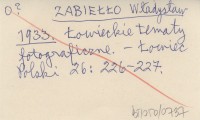 O? ZABIEŁŁO Władysław
1933. Łowieckie tematy
fotograficzne. - Łowiec
Polski 26: 226-227.